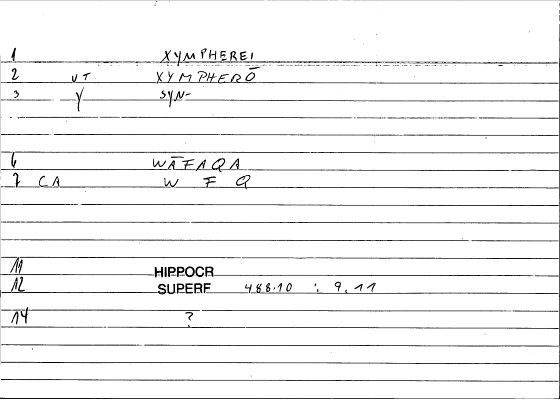 1 XYMPHEREI
2 UT XYMPHERŌ
3 Y SYN-
6 WĀFAQA
7 CA W F Q
11 HIPPOCR
12 SUPERF 488.10 : 9.11
14 ?